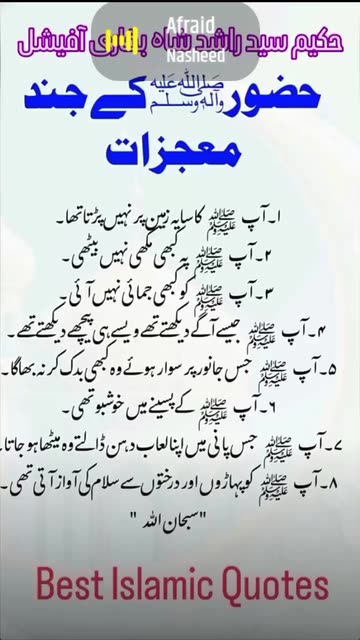 Afraid
Nasheed
حکیم سید راشد شاہ بخاری آفیشل
حضور ﷺ کے چند
معجزات
۱۔آپ ﷺ کا سایہ زمین پر نہیں پڑتا تھا۔
۲۔آپ ﷺ پہ کبھی مکھی نہیں بیٹھی۔
۳۔آپ ﷺ کو کبھی جمائی نہیں آئی۔
۴۔آپ ﷺ جیسے آگے دیکھتے تھے ویسے ہی پیچھے دیکھتے تھے۔
۵۔آپ ﷺ جس جانور پر سوار ہوئے وہ کبھی بدک کر نہ بھاگا۔
۶۔آپ ﷺ کے پسینے میں خوشبو تھی۔
۷۔آپ ﷺ جس پانی میں اپنا لعاب دہن ڈالتے وہ میٹھا ہو جاتا۔
۸۔آپ ﷺ کو پہاڑوں اور درختوں سے سلام کی آواز آتی تھی۔
"سبحان اللہ"
Best Islamic Quotes